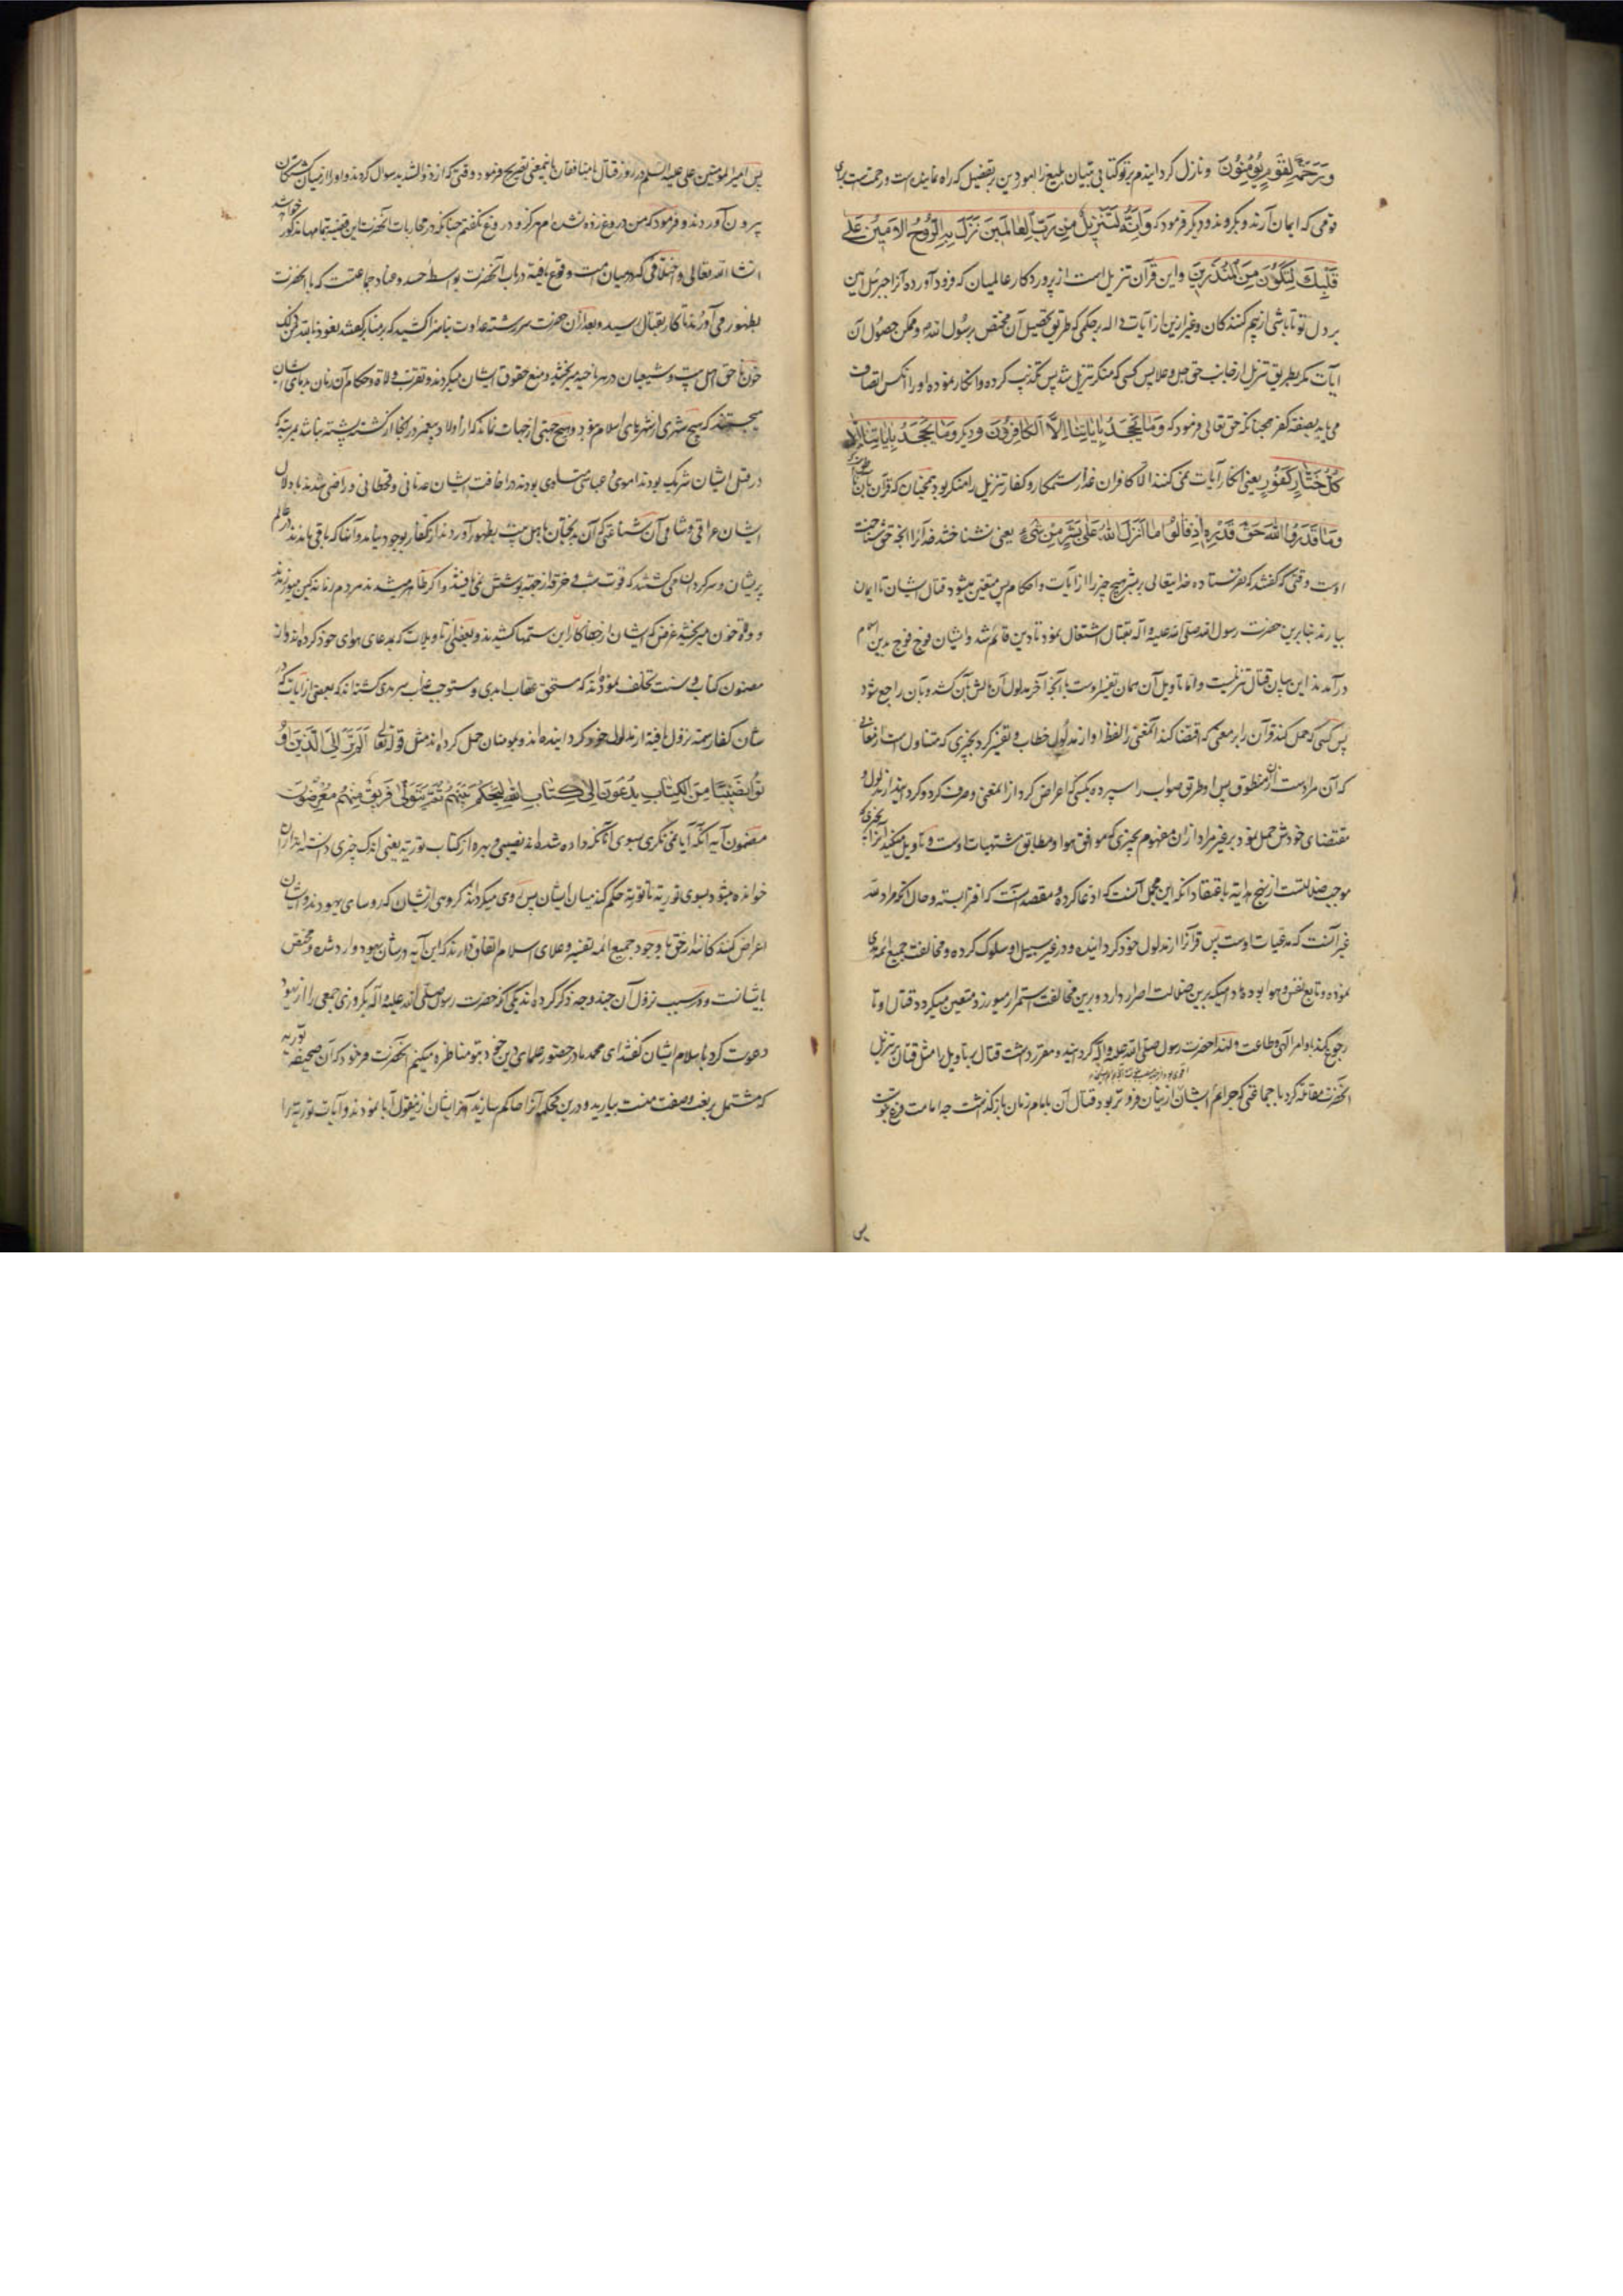 وَرَحْمَةً لِقَوْمٍ يُؤْمِنُونَ و نازل کردانیدم بر تو کتابی تبیان بلیغ را امور دین بر تفضیل که راه نماینده است و رحمتست برای
قومی که ایمان آرند و بکروند و دیکر فرمود که وَاِنَّهُ لَتَنْزِيلُ مِنْ رَبِّ الْعَالَمِينَ نَزَلَ بِهِ الرُّوحُ الْاَمِينُ عَلَى
قَلْبِكَ لِتَكُونَ مِنَ الْمُنْذِرِينَ و این قرآن تنزیل است از پروردکار عالمیان که فرود آورده آنرا جبرئیل امین
بر دل تو تا باشی از بیم کنندکان و غیر ازین از آیات داله بر حکمی که طریق تحصیل آن مختص برسول الله و ممکن حصول آن
آیات مکر بطریق تنزیل از جانب حق جل و علا پس کسی که منکر تنزیل شد پس تکذیب کرده و انکار نموده او را انکس اتصاف
می یابد بصفة کفر همچنانکه حق تعالی فرمود که وَمَا يَجْحَدُ بِاٰيَاتِنَا اِلَّا الْكَافِرُونَ و دیکر وَمَا يَجْحَدُ بِاٰيَاتِنَا اِلَّا
كُلُّ خَتَّارٍ كَفُورٍ یعنی انکار آیات نمی کنند الا کافران غدار ستمکار و کفار تنزیل را منکر بودند همچنان که قرآن
وَمَا قَدَرُوا اللهَ حَقَّ قَدْرِهِ اِذْ قَالُوا مَا اَنْزَلَ اللهُ عَلَى بَشَرٍ مِنْ شَىْءٍ یعنی نشناختند خدا را آنچه حق شناخت
اوست وقتی که کفتند که نفرستاده خدایتعالی بر بشر هیچ چیز را از آیات و احکام پس متعین میشود قتال ایشان تا ایمان
بیارند بنابرین حضرت رسول الله صلی الله علیه و اله بقتال اشتغال نمود تا دین قائم شد و ایشان فوج فوج بدین اسلام
درآمدند این بیان قتال تنزیلیست و اما تاویل آن همان تفسیر اوست با آنچه آخر مدلول آن مآلش بآن کشد و بآن راجع شود
پس کسی که حمل کند قرآن را بر معنی که اقتضا کند آنمعنی را لفظ او از مدلول خطاب و تفسیر کرد بچیزی که متناول است از معانی
که آن مراد است از منطوق پس او طریق صواب را سپرده بکسی که اعراض کرد از آنمعنی و صرف کرد و کردانید از مدلول و
مقتضای خودش حمل نمود بر غیر مراد از آن مفهوم بچیزی که موافق هوا و مطابق مشتهیات اوست و تاویل میکند آنرا بچیزی که
موجب ضلالتست از نهج هدایة باعتقاد انکه این محمل آنست که ادعا کرده و مقصد است که افترا بسته و حال انکه مراد الله
غیر آنست که مدعیات اوست پس قرآن را از مدلول خود کردانیده و در غیر سبیل او سلوک کرده و مخالفت جمیع ائمه هدی
نموده و تابع نفس و هوا بوده مادامیکه برین ضلالت اصرار دارد و برین مخالفت استمرار میورزد متعین میکردد قتال او تا
رجوع کند باوامر الهی و طاعت و لهذا حضرت رسول صلی الله علیه و آله کردانید و مقرر داشت قتال بر تاویل را مثل قتال بر تنزیل
آنحضرت مقاتله کرد با جماعتی که جرائم ایشان از ینان فروتر بود قتال آن بامام زمان بازکذاشت چه امامت فرع نبوت
پس
پس امیر المؤمنین علی علیه السلم در روز قتال با منافقان باینمعنی تصریح فرمود وقتی که از ذو الثدیه سوال کردند و او را از میان کشتکان
بیرون آوردند و فرمود که من دروغ زده نشده ام هرکز و دروغ نکفتم چنانکه در محاربات آنحضرت این قضیه بتمامها مذکور خواهد شد
انشا الله تعالی و اختلافی که در میان امت وقوع یافته در باب آنحضرت بواسطه حسد و عناد جماعتست که با آنحضرت
بظهور می آوردند تا کار بقتال رسید و بعد از آن حضرت سررشته عداوت بناسزا کشید که بر منابر کفتند نعوذ بالله من ذلک
خون ناحق اهل بیت و شیعیان در هر ناحیه میریختند و منع حقوق ایشان میکردند و تقرب ولاة و حکام آن زمان بدمای ایشان
میجستند که هیچ شهری از شهرهای اسلام نبود و هیچ جهتی از جهات نماند که از اولاد پیغمبر در آنجا از کشته پشته نباشد بمرتبه که
در قتل ایشان شریک بودند اموی و عباسی متساوی بودند در اخافت ایشان عدنانی و قحطانی و راضی شدند باذلال
ایشان عراقی و شامی آن شناعتی که آن بدبختان باهل بیت بظهور آوردند از کفار بوجود نیامد و آنها که باقی ماندند در عالم
پریشان و سرکردان می کشتند که قوت شب و خرقه از جهة پوشش نمی یافتند و اکر ظاهر میشدند مردم زمانه کین میورزیدند
و ولاة خون میریختند غرض که ایشان از جفا کاران این ستمها کشیدند و بعضی از تاویلات که بمدعای هوای خود کرده اند و از
مضمون کتاب و سنت تخلف نموده اند که مستحق عقاب ابدی و مستوجب عذاب سرمدی کشته اند که بعضی از آیات که در
شان کفار سمة نزول یافته از مدلول خود کردانیده اند و بمؤمنان حمل کرده اند مثل قوله تعالی اَلَمْ تَرَ اِلَى الَّذِينَ اُو
تُوا نَصِيبًا مِنَ الْكِتَابِ يُدْعَوْنَ اِلَى كِتَابِ اللهِ لِيَحْكُمَ بَيْنَهُمْ ثُمَّ يَتَوَلَّى فَرِيقٌ مِنْهُمْ وَهُمْ مُعْرِضُونَ
مضمون آیه انکه آیا نمی نکری بسوی آنانکه داده شده اند نصیبی و بهره از کتاب توریة یعنی اندک چیزی دانسته اند از آن
خوانده میشود بسوی توریة تا توریة حکم کند میان ایشان پس روی میکردانند کروهی از یشان که روسای یهودند و ایشان
اعراض کنندکانند از حق با وجود جمیع ائمه تفسیر و علمای اسلام اتفاق دارند که این آیه در شان یهود وارد شده و مختص
بایشانست و در سبب نزول آن چند وجه ذکر کرده اند یکی آنکه حضرت رسول صلی الله علیه و آله یکروزی جمعی را از یهود
دعوت کرد باسلام ایشان کفتند ای محمد ما در حضور علمای دین خود بتو مناظره میکنیم آنحضرت فرمود که آن صحیفه توریة
که مشتمل بر نعت و صفت منست بیارید و درین محکمه آنرا حاکم سازید آخر ایشان از ینقول آبا نمودند و آیات توریة را